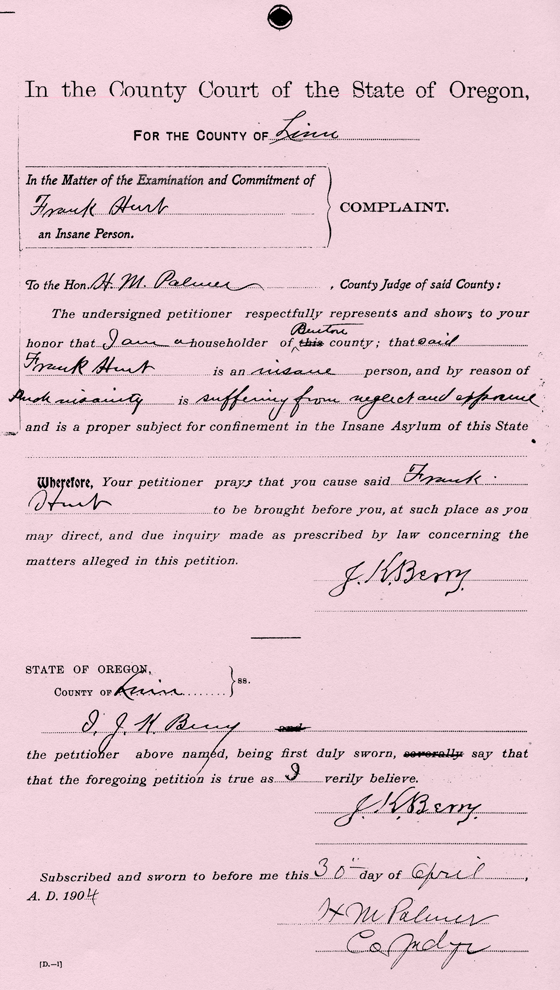 In the County Court of the State of Oregon,
FOR THE COUNTY OF Linn
In the Matter of the Examination and Commitment of
Frank Hurt
an Insane Person.
COMPLAINT.
To the Hon. H. M. Palmer, County Judge of said County:
The undersigned petitioner respectfully represents and shows to your
Benton
honor that I am a householder of this county; that said
Frank Hurt is an insane person, and by reason of
Such insanity is suffering from neglect and exposure
and is a proper subject for confinement in the Insane Asylum of this State
Wherefore, Your petitioner prays that you cause said Frank
Hurt to be brought before you, at such place as you
may direct, and due inquiry made as prescribed by law concerning the
matters alleged in this petition.
J. K. Berry.
STATE OF OREGON,
COUNTY OF Linn } ss.
I, J. K. Berry and
the petitioner above named, being first duly sworn, severally say that
that the foregoing petition is true as I verily believe.
J. K. Berry.
Subscribed and sworn to before me this 30 day of April,
A. D. 1904
H M Palmer
Co Judge
[D.—1]